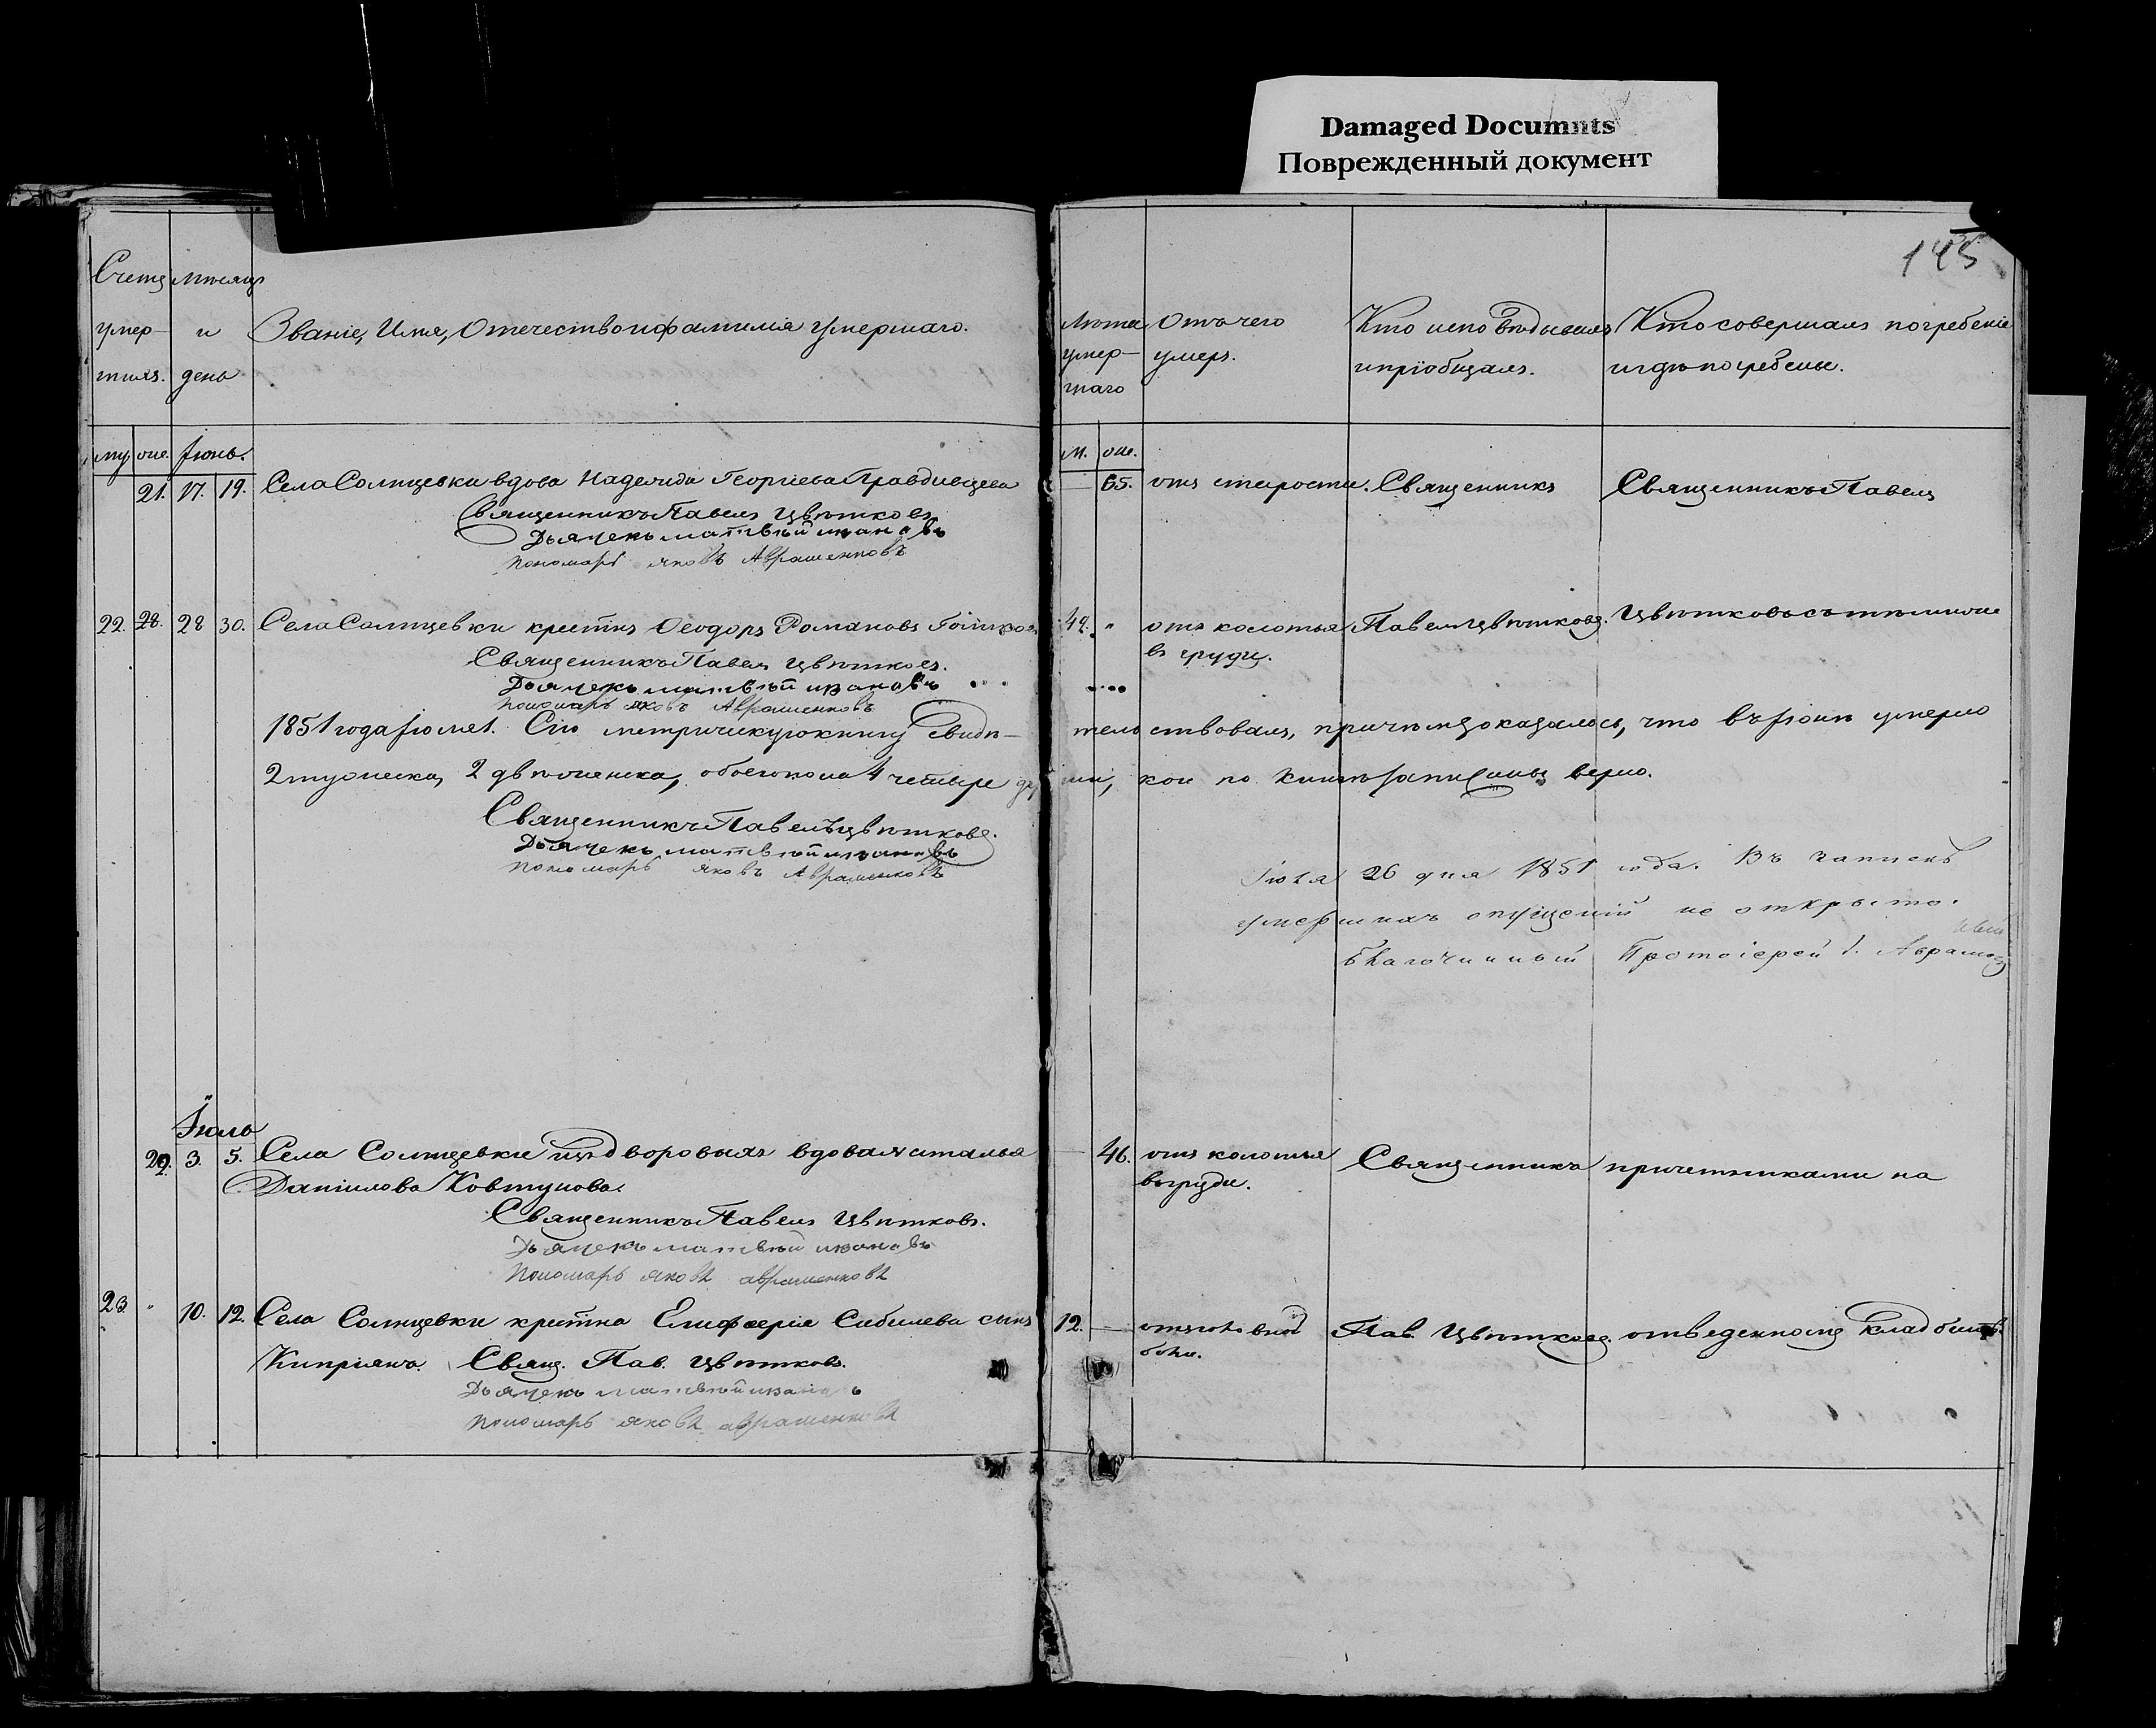 Damaged Documnts
Поврежденный документ
145
Счетъ умер- шихъ.
мѣсяцъ и день
Званіе, Имя, Отечество и фамилія умершаго.
Лѣта умер- шаго
Отъ чего умеръ.
Кто исповѣдывалъ и пріобщалъ.
Кто совершалъ погребеніе и гдѣ погребены.
му. же. Іюнь.
м. же.
21. 17. 19. Села Солнцевки вдова Надежда Георгіева Правдивцева
65. отъ старости. Священникъ Священникъ Павелъ
Священникъ Павелъ Цвѣтковъ
Дьячекъ матвѣй ивановъ
пономарь яковъ Аврашенковъ
22. 28. 28 30. Села Солнцевки крестнъ Ѳеодоръ Романовъ
42. " отъ колотья Павелъ Цвѣтковъ. Цвѣтковъ съ тѣми же
въ груди.
Священникъ Павелъ Цвѣтковъ.
Дьячекъ матвѣй ивановъ
пономарь яковъ Аврашенковъ
1851 года Іюля 1. Сію метрическую книгу свидѣ- тельствовалъ, при чемъ оказалось, что въ Іюнѣ умерло
2 мужеска, 2 двѣ женска, обоего пола 4 четыре души, кои по книгѣ записаны вѣрно.
Священникъ Павелъ Цвѣтковъ.
Дьячекъ матвѣй ивановъ
пономарь яковъ Аврашенковъ
Іюля 26 дня 1851 года. Въ записѣ
умершихъ опущеній не открыто.
благочинный Протоіерей І.
Іюль
29. 3. 5. Села Солнцевки изъ дворовыхъ вдова Наталья
46. отъ колотья Священникъ причетниками на
въ груди.
Даніилова Ковтунова.
Священникъ Павелъ Цвѣтковъ.
Дьячекъ матвѣй ивановъ
пономарь яковъ аврашенковъ
23 " 10. 12. Села Солнцевки крестна Елифѳерія Сибилева сынъ
12. — отъ головной Пав. Цвѣтковъ. отведенномъ кладбищѣ.
боли.
Кипріянъ. Свящ. Пав. Цвѣтковъ.
Дьячекъ матвѣй ивановъ
пономарь яковъ аврашенковъ